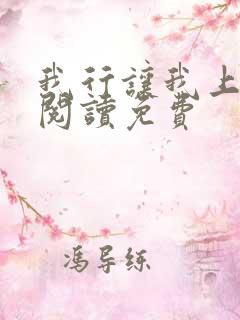 我行讓我上
閱讀免費
馮导练